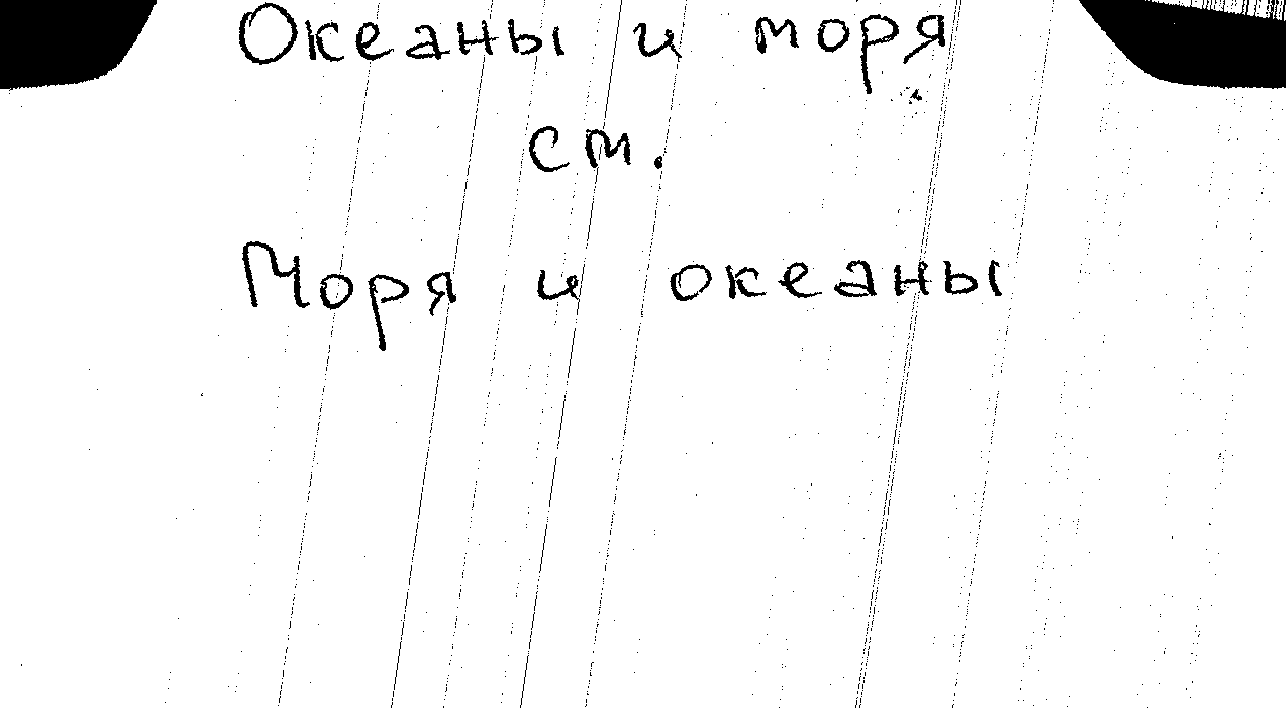 Океаны и моря
см.
Моря и океаны